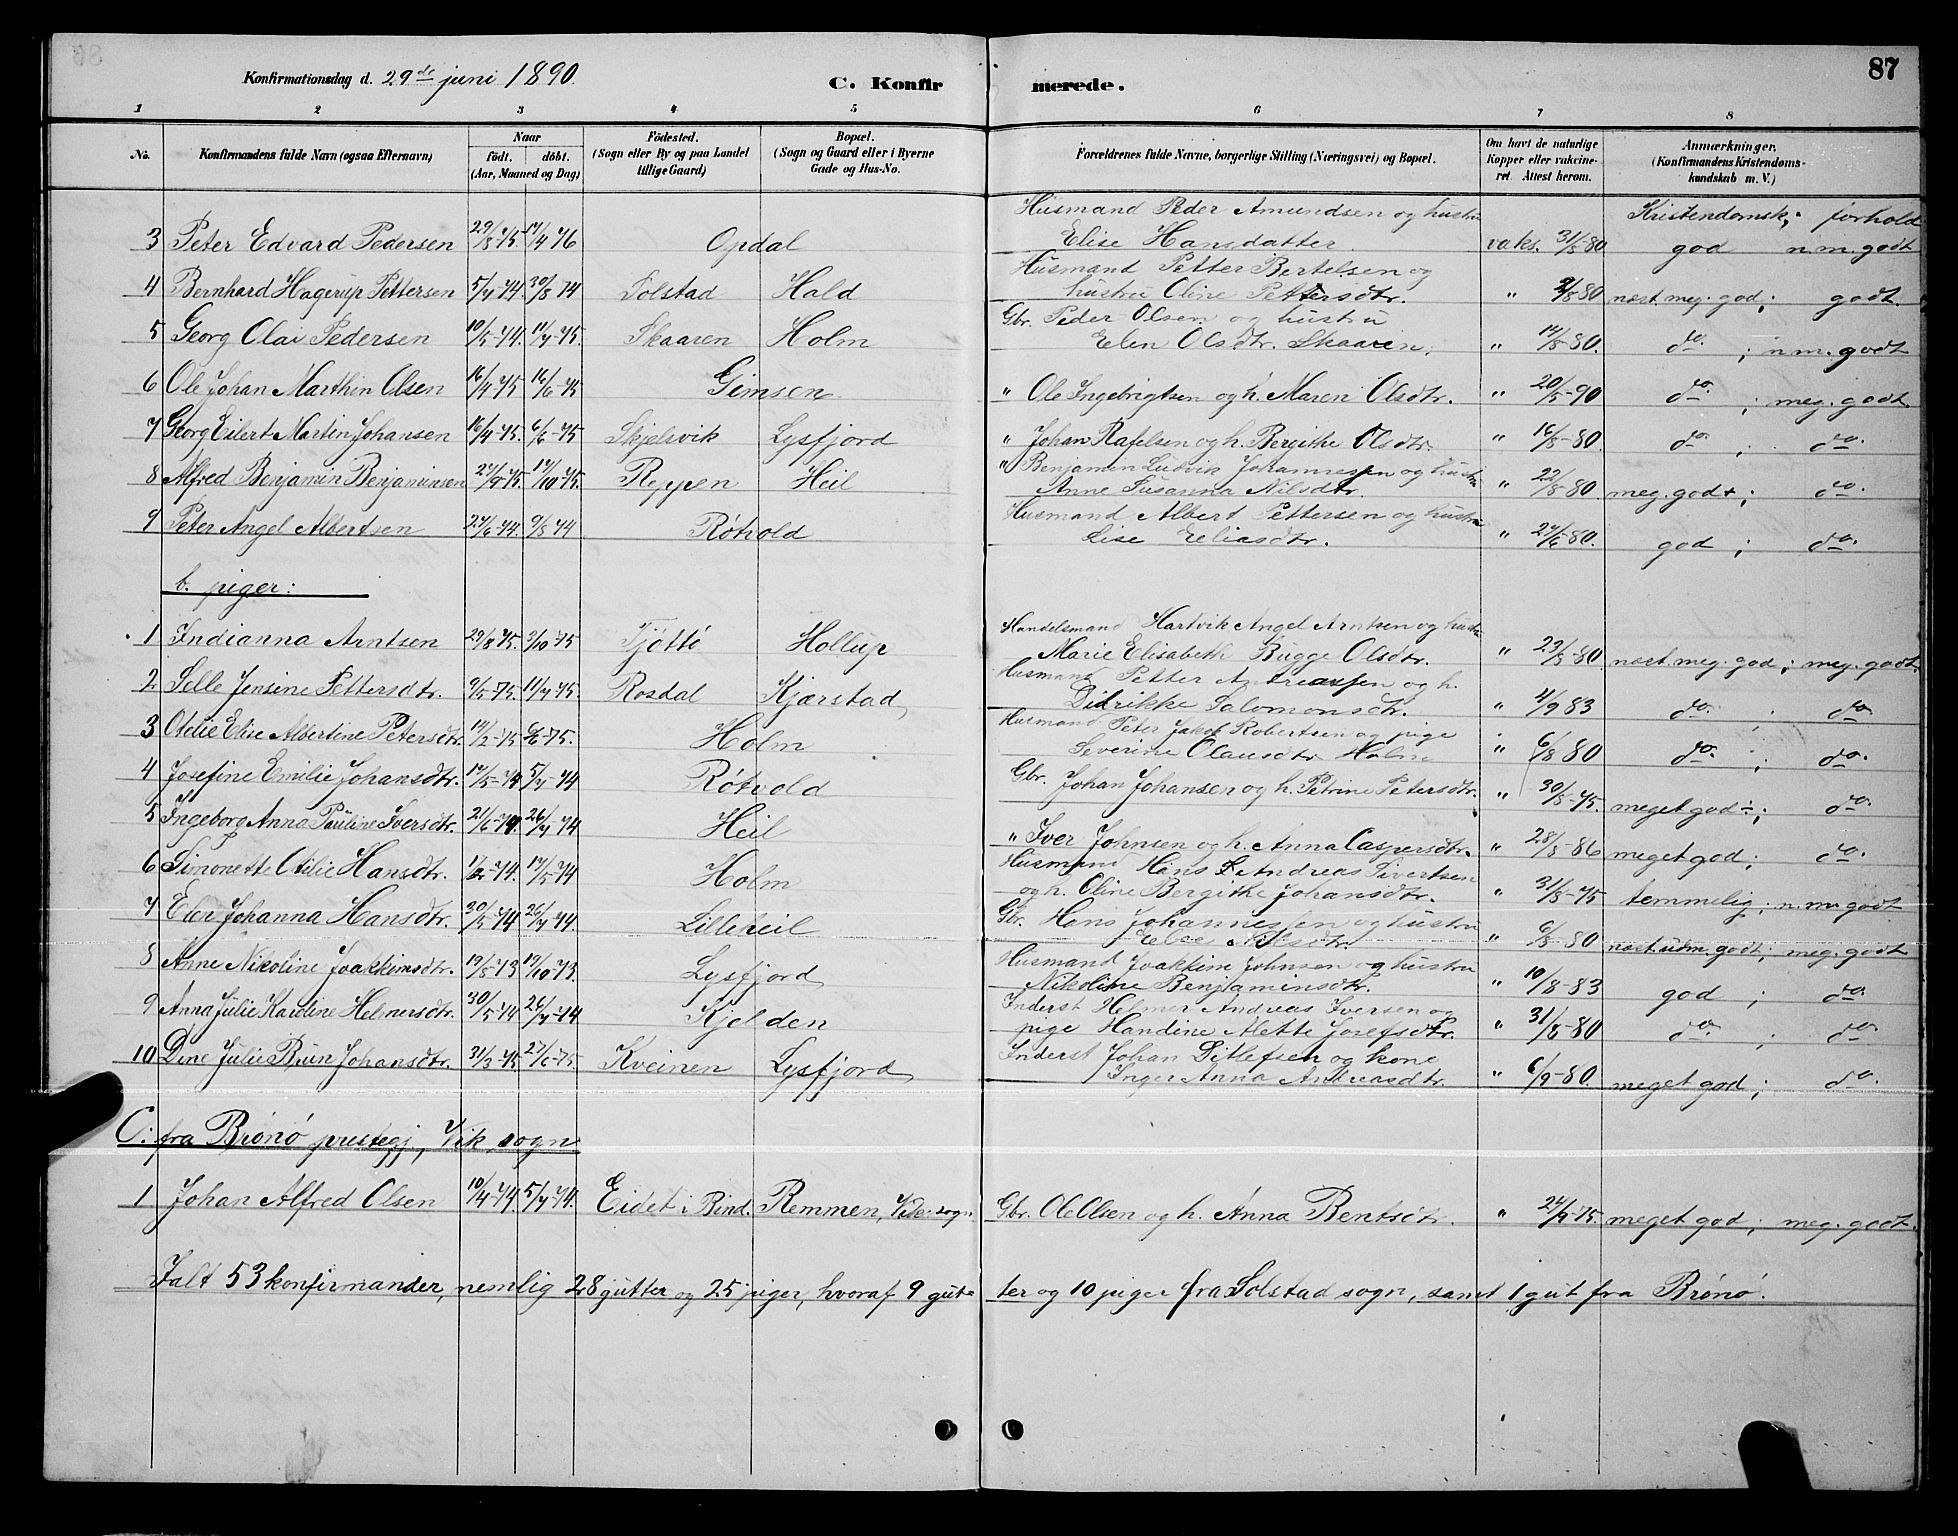 Konfirmationsdag d. 29de juni 1890.
C. Konfirmerede.
87
1 2 3 4 5 6 7 8
No.
Konfirmandens fulde Navn (ogsaa Efternavn)
Naar født. døbt. (Aar, Maaned og Dag)
Fødested. (Sogn eller By og paa Landet tillige Gaard)
Bopæl. (Sogn og Gaard eller i Byerne Gade og Hus-No.
Forældrenes fulde Navne, borgerlige Stilling (Næringsvei) og Bopæl.
Om havt de naturlige Kopper eller vakcineret Attest herom.
Anmærkninger. (Konfirmandens Kristendomskundskab m. V.)
Kristendomsk; forhold
3 Peter Edvard Pedersen 29/8 75 17/4 76 Opdal Husmand Peder Amundsen og hustru Elise Hansdatter. vaks. 31/8-80 god n. m. godt
4 Bernhard Hagerup Pettersen 5/7-74. 30/8 74 Solstad Hald Husmand Petter Bertelsen og hustru Oline Pettersdtr. " /8 80 næst. meg. god; godt.
5 Georg Olai Pedersen 10/5-74. 11/7-75. Skaaren Holm Gbr. Peder Olsen og hustru Elen Olsdtr. Skaaren. " 17/8-80. do. ; n. m. godt
6 Ole Johan Marthin Olsen 16/4-75 16/6-75 Gimsen " Ole Ingebrigtsen og h. Maren Olsdtr. " 20/5-90 do. ; meg. godt.
7 Georg Eilert Martin Johansen 16/4-75. 6/6-75 Skjelsvik Lysfjord " Johan Rafelsen og h. Bergithe Olsdtr. " 16/8-80. do. ; do.
8 Alfred Benjamin Benjaminsen 27/9-75. 17/10-75. Reppen Heil " Benjamin Ludvik Johannessen og hustru Anne Susanna Nilsdtr. " 22/8-80 meg. godt; do.
9 Peter Angel Albertsen 27/6-74. 9/8 74 Røtvold Husmand Albert Pettersen og hustru Lise Eliasdtr. " 27/6-80. god ; do.
b. piger:
1 Indianna Arntsen 29/8 75. 3/10 75 Tjøttø Hollup Handelsmand Hartvik Angel Arntsen og hustru Marie Elisabeth Bugge Olsdtr. " 23/8-80 næst. meg. god; meg. godt
2 Selle Jensine Pettersdtr. 9/5-75. 11/7-75. Rosdal Kjærstad Husmand Petter Andreassen og h. Didrikke Salomonsdtr. " 4/9 83 do. ; do.
3 Otelie Elise Albertine Petersdtr. 14/2-75 /6-75. Holm Husmand Peter Jakob Robertsen og pige Severine Olausdtr Holm " 6/8 80 do. ; do.
4 Josefine Emilie Johansdtr. 14/5-74 5/7-74 Røtvold Gbr. Johan Johansen og h. Petrine Petersdtr. " 30/8-75. meget god÷; do.
5 Ingeborg Anna Pauline Iversdtr. 21/6-74. 26/7 74 Heil " Iver Johnsen og h. Anna Caspersdtr. " 28/8-86 meget god; do.
6 Simonette Otilie Hansdtr. 1/2-74. 17/5-74 Holm Husmand Hans Andreas Sivertsen og h. Oline Bergithe Johansdtr. " 31/8-75 temmelig; n. m. godt
7 Elen Johanna Hansdtr. 30/5 74 26/7 74. Lilleheil Gbr. Hans Johannessen og hustru Else Nilsdtr. " 6/8-80 næst. udm. godt; meg. godt
8 Anne Nikoline Joakkimsdtr. 19/8-73 19/10-73 Lysfjord Husmand Joakkim Johnsen og hustru Nikoline Benjaminsdtr. " 10/8-83 god ; do.
9 Anna Julie Karoline Helmersdtr. 30/5 74 26/7-74 Kjelden Inderst Helmer Andreas Iversen og pige Handine Alette Josefsdtr. " 31/8-80 do. ; do.
10 Dine Julie Brun Johansdtr. 31/3-75 27/6-75. Kveinen Lysfjord Inderst Johan Ditlefsen og kone Inger Anna Andreasdtr. " 6/9-80 meget god; do.
C: fra Brønø prestegj, Vik sogn
1 Johan Alfred Olsen 10/4-74. 5/7-74. Eidet i Bind. Remmen, Viks sogn Gbr. Ole Olsen og h. Anna Bentsdtr. " 24/9-75. meget god; meg. godt.
Ialt 53 konfirmander, nemlig 28 gutter og 25 piger, hvoraf 9 gutter og 10 piger fra Solstad sogn, samt 1 gut fra Brønø.